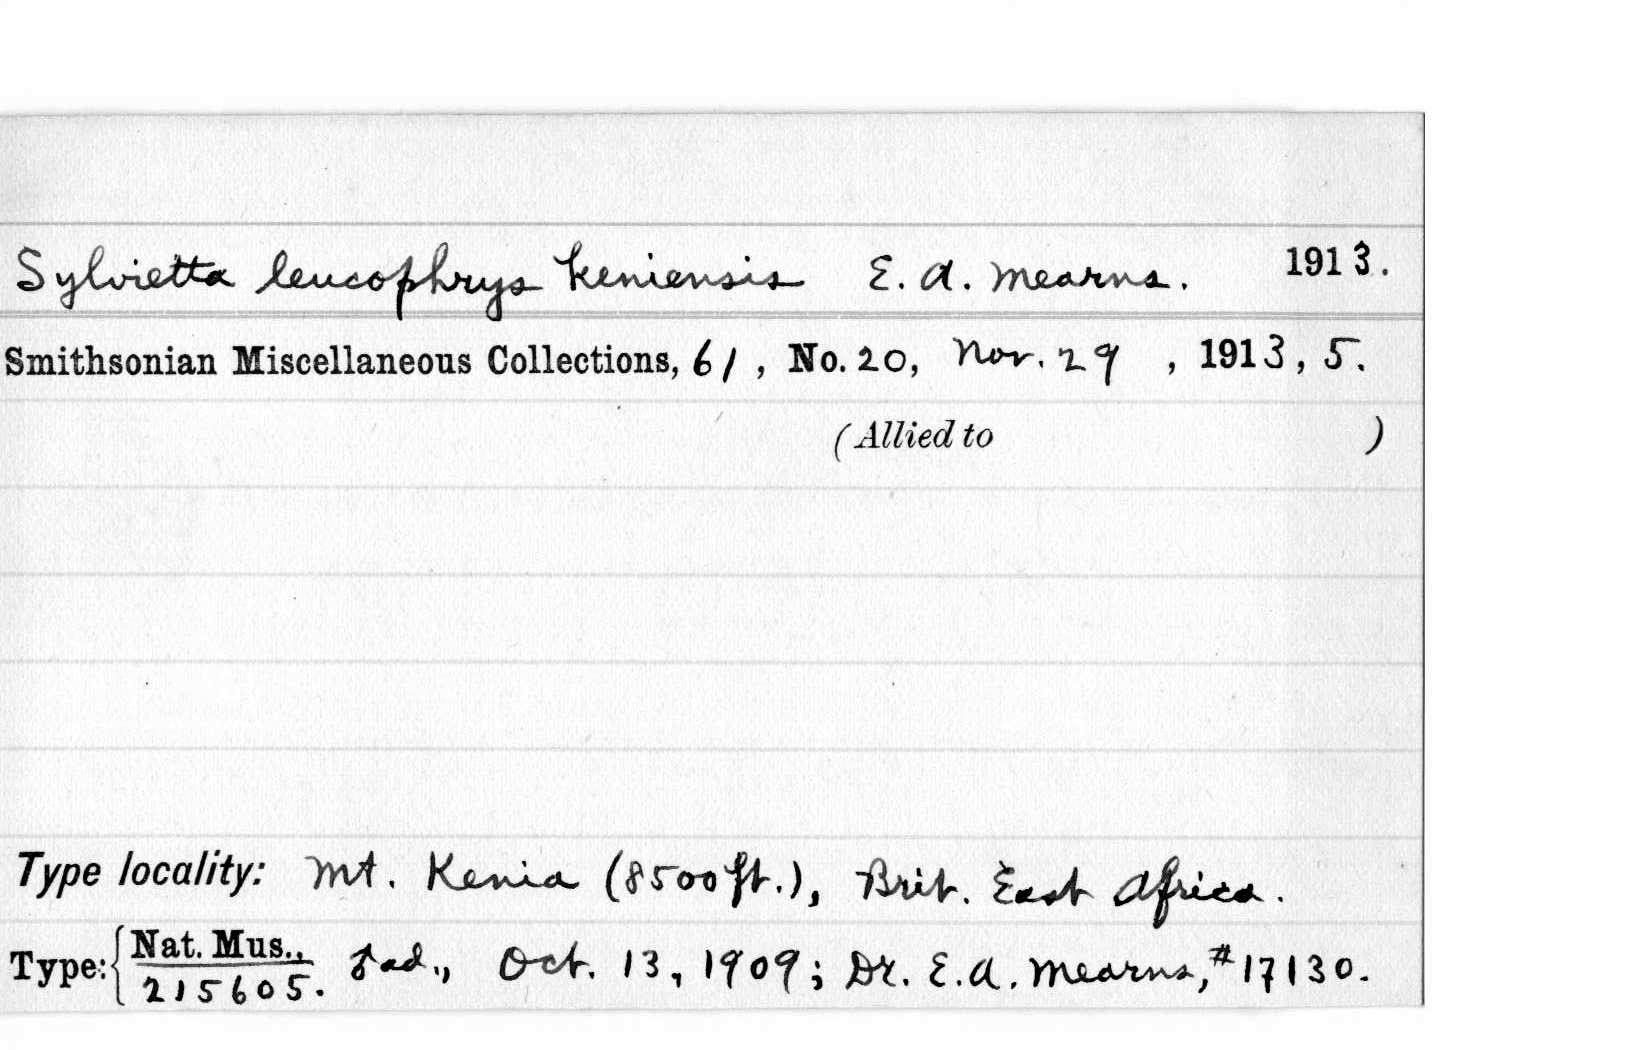 Sylvietta leucophrys keniensis E. A. Mearns. 1913.
Smithsonian Miscellaneous Collections, 61, No. 20, Nov. 29, 1913, 5.
(Allied to )
Type locality: Mt. Kenia (8500 ft.), Brit. East Africa.
Type: { Nat. Mus., 215605. ♂ ad., Oct. 13, 1909; Dr. E. A. Mearns, #17130.